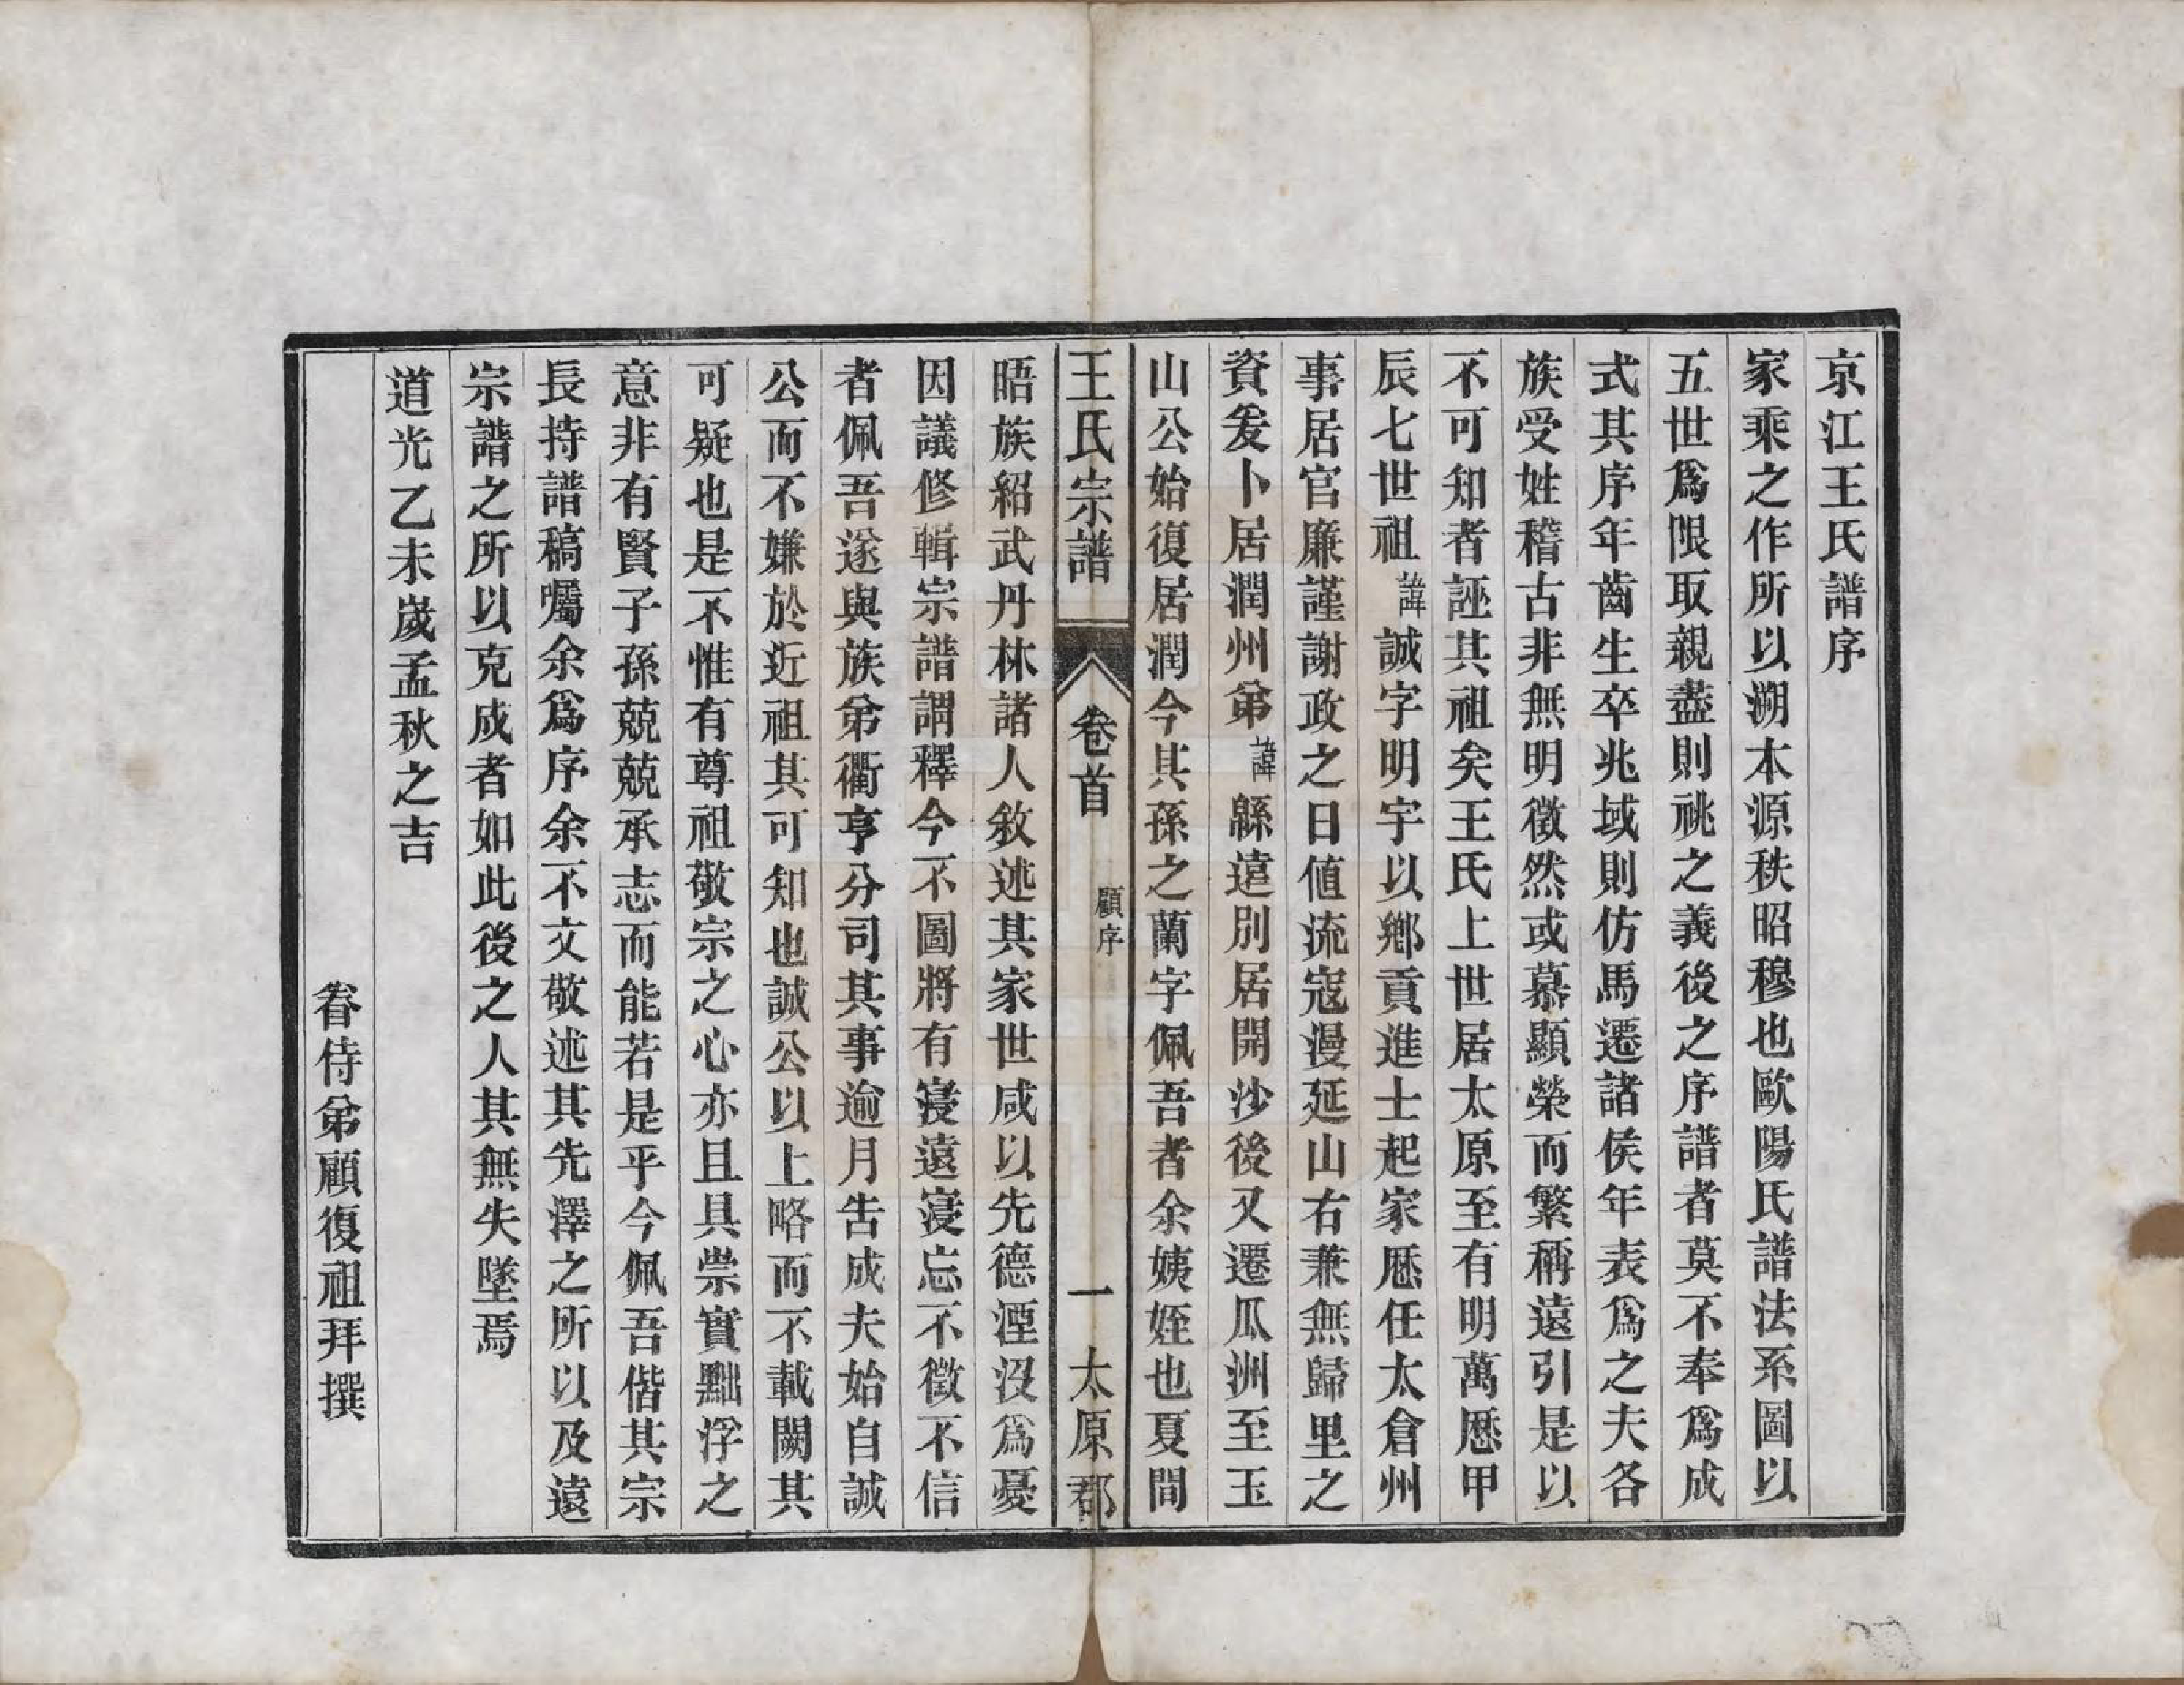 京江王氏譜序
家乘之作所以溯本源秩昭穆也歐陽氏譜法系圖以
五世爲限取親盡則祧之義後之序譜者莫不奉爲成
式其序年齒生卒兆域則仿馬遷諸侯年表爲之夫各
族受姓稽古非無明徵然或慕顯榮而繁稱遠引是以
不可知者誣其祖矣王氏上世居太原至有明萬厯甲
辰七世祖諱誠字明宇以鄉貢進士起家厯任太倉州
事居官廉謹謝政之日値流寇漫延山右兼無歸里之
資爰卜居潤州弟諱緜遠別居開沙後又遷瓜洲至玉
山公始復居潤今其孫之蘭字佩吾者余姨姪也夏間
王氏宗譜 卷首 顧序 一 太原郡
晤族紹武丹林諸人敘述其家世咸以先德湮沒爲憂
因議修輯宗譜謂釋今不圖將有寖遠寖忘不徵不信
者佩吾遂與族弟衢亨分司其事逾月吿成夫始自誠
公而不嫌於近祖其可知也誠公以上略而不載闕其
可疑也是不惟有尊祖敬宗之心亦且具崇實黜浮之
意非有賢子孫兢兢承志而能若是乎今佩吾偕其宗
長持譜稿囑余爲序余不文敬述其先澤之所以及遠
宗譜之所以克成者如此後之人其無失墜焉
道光乙未歲孟秋之吉
眷侍弟顧復祖拜撰